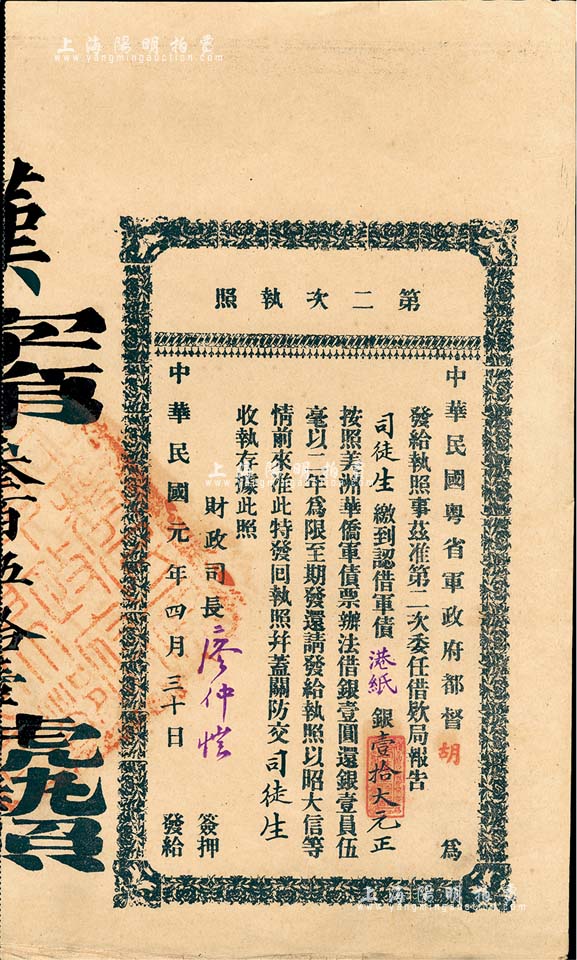 上海陽明拍賣
www.yangmingauction.com
第二次執照
中華民國粵省軍政府都督胡 為
發給執照事茲准第二次委任借欵局報告
司徒生繳到認借軍債港紙銀壹拾大元正
按照美洲華僑軍債票辦法借銀壹圓還銀壹員伍
毫以二年為限至期發還請發給執照以昭大信等
情前來准此特發囘執照幷蓋關防交司徒生
收執存據此照
財政司長廖仲愷 簽押
中華民國元年四月三十日 發給
上海陽明拍賣
www.yangmingauction.com
上海陽明拍賣
www.yangmingauction.com